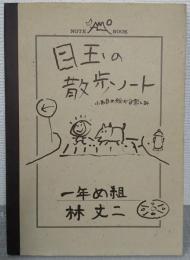 NOTE BOOK
目玉の
散歩ノート
一年め組
林丈二